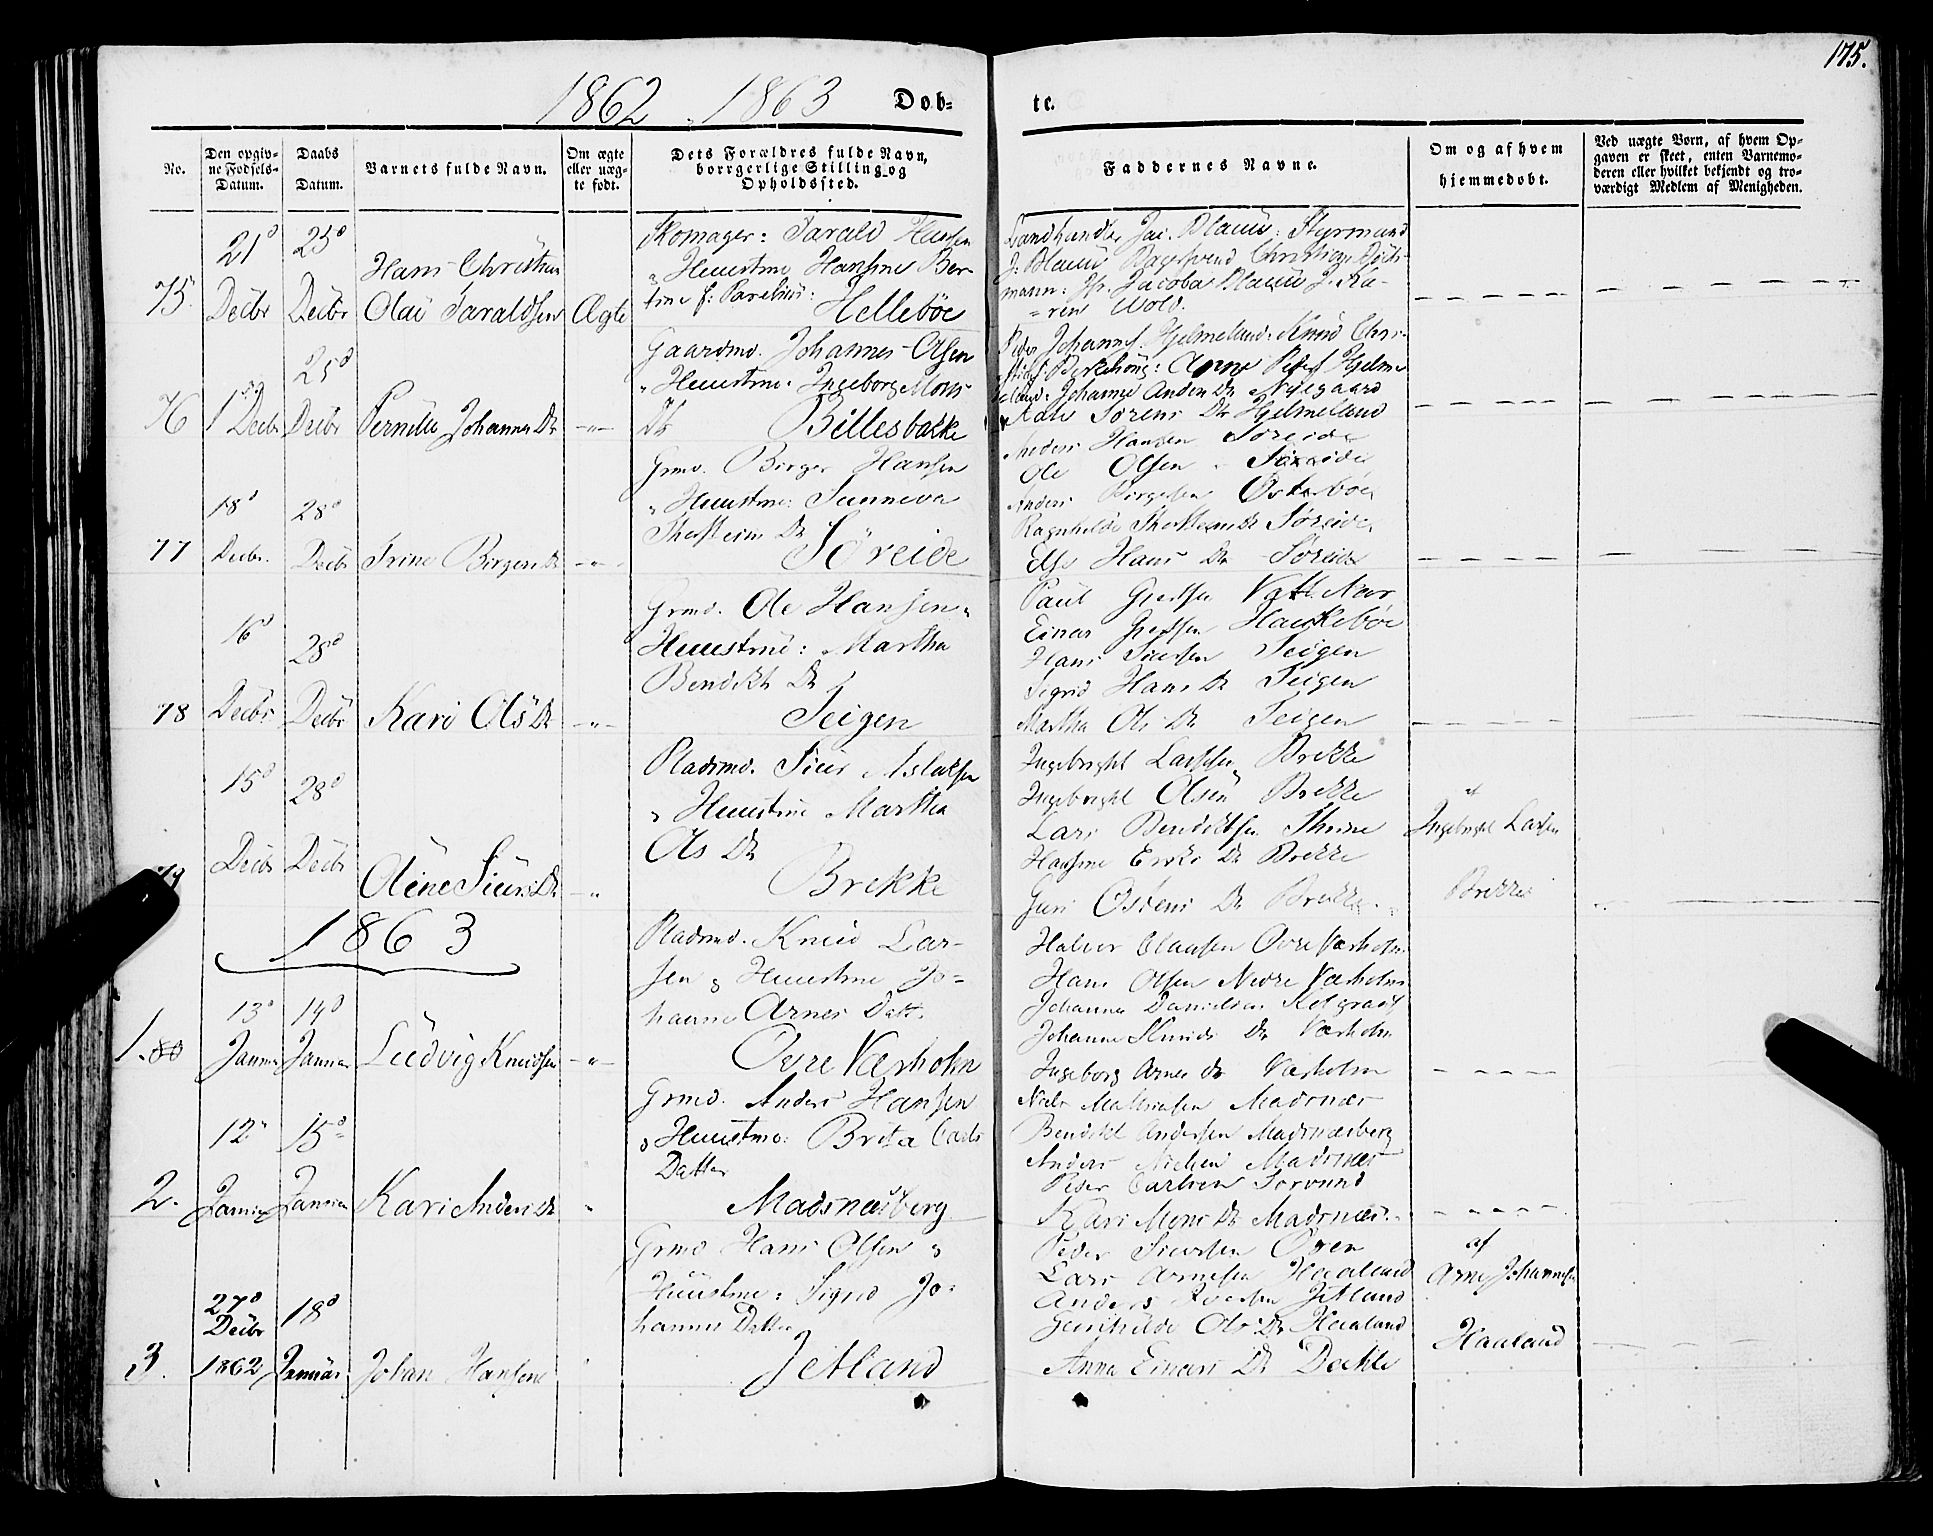 175.
1862 . 1863 Dob= te.
No.
Den opgiv=
ne Fødsels=
Datum.
Daabs
Datum.
Barnets fulde Navn.
Om ægte
eller uæg=
te født.
Dets Forældres fulde Navn,
borrgerlige Stilling og
Opholdsted.
Faddernes Navne.
Om og af hvem
hjemmedøbt.
Ved uægte Born, af hvem Op-
gaven er skeet, enten Barnemo-
deren eller hvilket bekjendt og tro-
værdigt Medlem af Menigheden.
75.
21d
Decbr
25d
Decbr
Hans Christian
Olai Taraldsen
Ægte
Skomager: Tarald Hansen
Huustrue Hansine Ber-
tine f:
Hellebøe
Landhandler Jac. Blauw: Styrmand
J. Blauw Christian
mann: Jfr. Jacoba Blauw J. Ka-
=ren Wold.
76
1ste Decbr
25d
Decbr
Pernille Johannes Dr
Gaardmd. Johannes Olsen
Huustrue Ingeborg Mons
Dr Billesbakke
Peder Johannes. Hjelmeland: Knud Chri-
Birkehoug: Anne Peders Hjelme
land: Johanne Anders Dr Nygaard
Kari Sørens Dr Hjelmeland
77
18d
Decbr.
28d
Decbr
Trine Birgers Dr
Grmd. Birger Hansen
Huustrue: Sunneva
Thorsteins Dr
Søreide
Anders Hansen Søreide
Ole Olsen Søreide
Anders Birgersen Østerboe
Ragnhilde Thorsteins Dr Søreide
Else Hans Dr Søreide
78
16d
Decbr.
28d
Decbr
Kari Ols Dr
Grmd. Ole Hansen
Huustrue: Martha
Bendikts Dr
Teigen
Paul Gjertsen
Einar Gjertsen Haukebøe
Hans Siversen Teigen
Sigrid Hans Dr Teigen
Martha Ols Dr Teigen
79
15d
Decbr
28d
Decbr
Oline Siurs Dr
Pladsmd. Siur Aslaksen
Huustrue Martha
Ols Dr
Brekke
Ingebrigt Larssen Brekke
Ingebrigt Olsen Brekke
Lars Bendiktsen Thune
Hansine Eriks Dr Brekke
Guri Ostens Dr Brekke
af
Ingebrigt Larsen
Brekke
1863
1. 80
13d
Januar
14d
Januar
Ludvig Knudsen
Pladsmd. Knud Lar-
sen & Huustrue Jo-
hanne Arnes Datt.
Øvre Værholm
Halvor Clausen Øvre Værholm
Hans Olsen Nedre Værholm
Johannes Danielsen
Johanne Knuds Dr Værholm
Ingeborg Arnes Dr Værholm
2.
12
Januar
15d
Januar
Kari Anders Dr
Grmd. Anders Hansen
& Huustrue: Brita Carls
Datter
Madsnæsberg
Niels Mathiasen Madsnæs
Bendikt Andersen Madsnæsberg
Anders Nielsen Madsnæs
Peder Carlsen Sorvund
Kari Mons Dr Madsnæs
3.
27d
Decbr
1862
18d
Januar
Johan Hansen
Grmd Hans Olsen &
Huustrue: Sigrid Jo-
hannes Datter
Jetland
Peder Siursen Øren
Lars Arnesen Haaland
Anders Iversen Jetland
Gunhilde Ols Dr Haaland
Anna Einars Dr Deckle
af
Arne Johannesen
Haaland